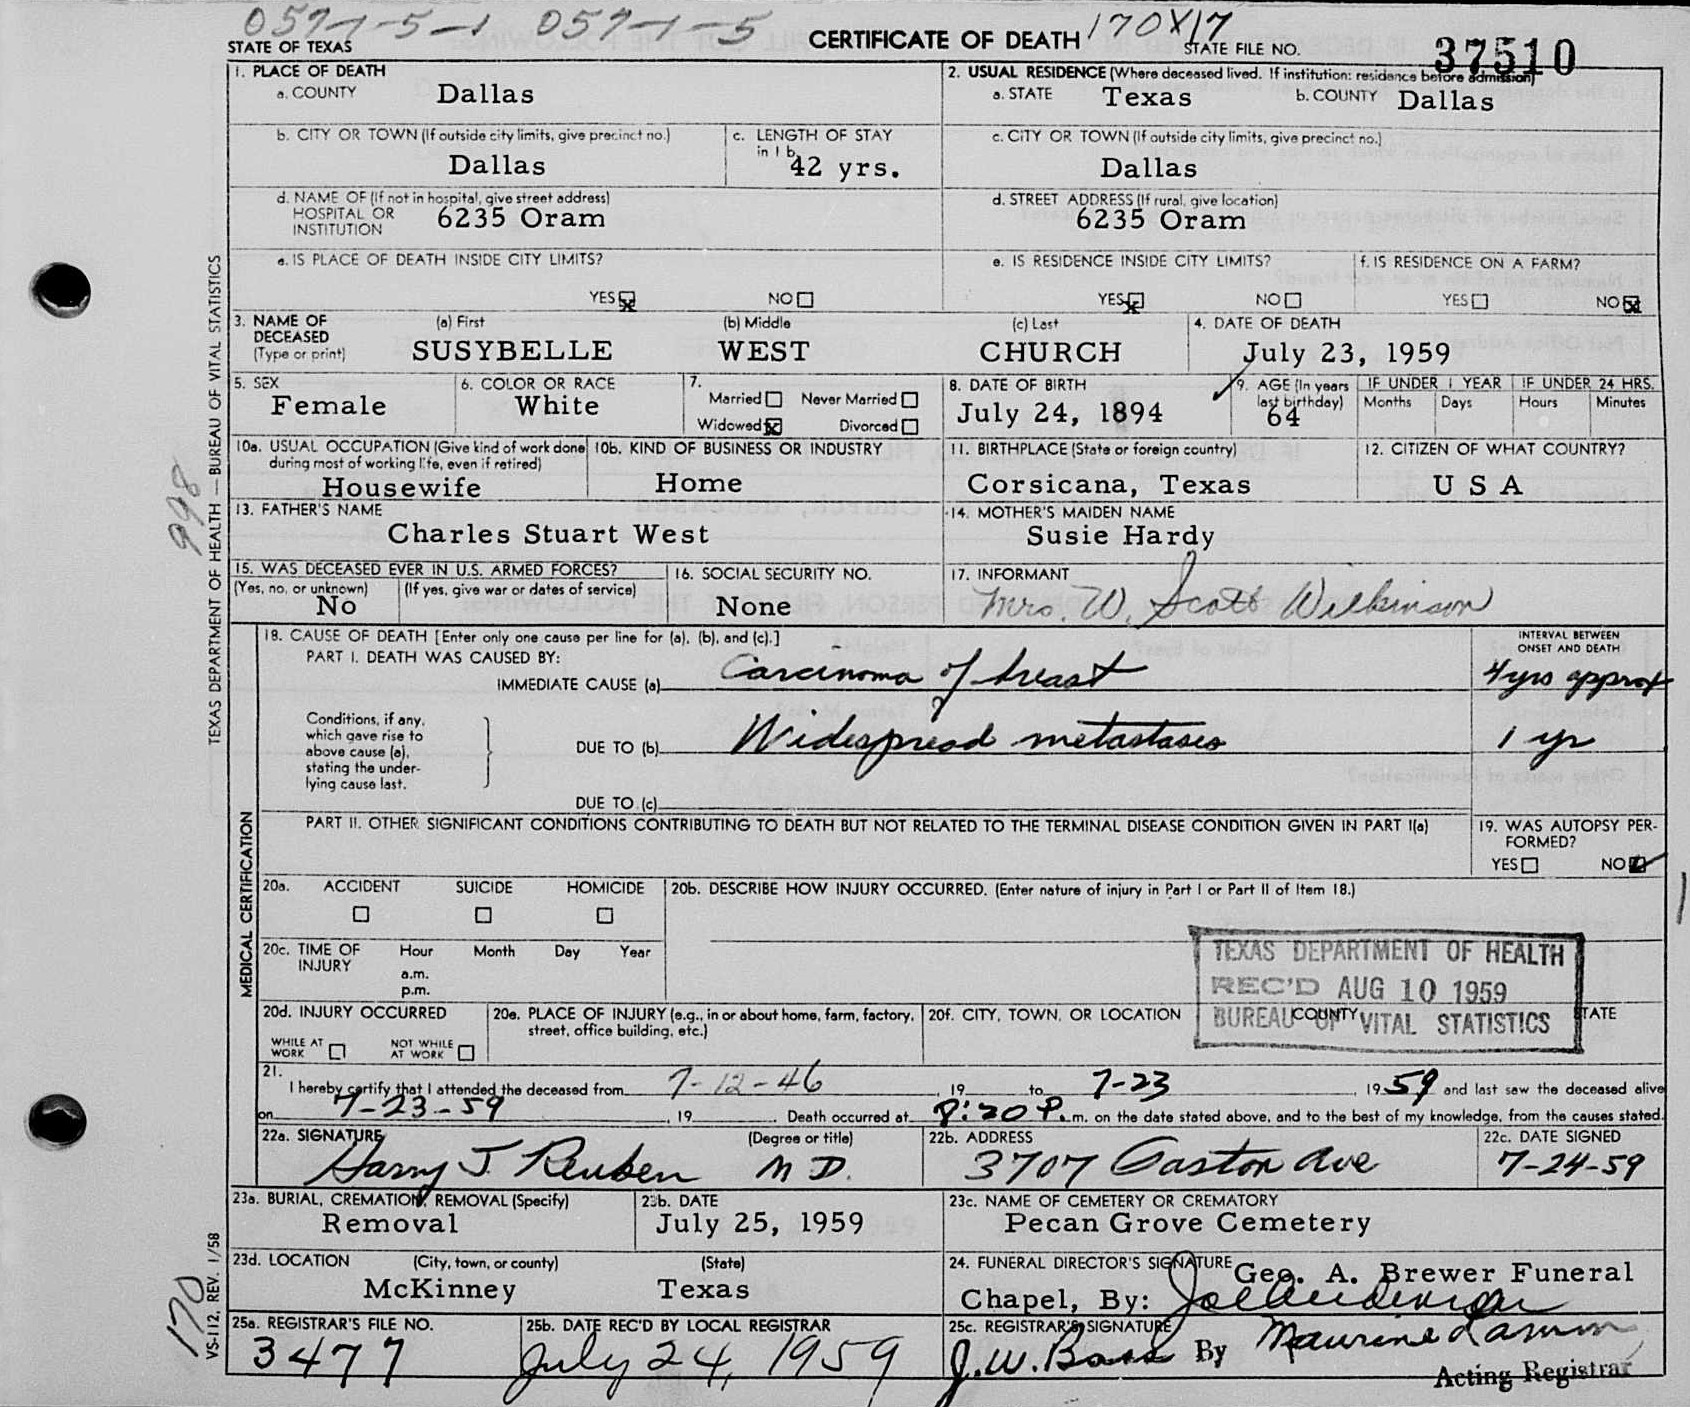 057-1-5-1 057-1-5 170X17
STATE OF TEXAS CERTIFICATE OF DEATH STATE FILE NO. 37510
1. PLACE OF DEATH
a. COUNTY Dallas
2. USUAL RESIDENCE (Where deceased lived. If institution: residence before admission)
a. STATE Texas b. COUNTY Dallas
b. CITY OR TOWN (If outside city limits, give precinct no.)
Dallas
c. LENGTH OF STAY
in 1 b.
42 yrs.
c. CITY OR TOWN (If outside city limits, give precinct no.)
Dallas
d. NAME OF (If not in hospital, give street address)
HOSPITAL OR
INSTITUTION
6235 Oram
d. STREET ADDRESS (If rural, give location)
6235 Oram
e. IS PLACE OF DEATH INSIDE CITY LIMITS?
YES x NO
e. IS RESIDENCE INSIDE CITY LIMITS?
YES x NO
f. IS RESIDENCE ON A FARM?
YES NO x
3. NAME OF
DECEASED
(Type or print)
(a) First (b) Middle (c) Last
SUSYBELLE WEST CHURCH
4. DATE OF DEATH
July 23, 1959
5. SEX
Female
6. COLOR OR RACE
White
7.
Married Never Married
Widowed x Divorced
8. DATE OF BIRTH
July 24, 1894
9. AGE (In years
last birthday)
64
IF UNDER 1 YEAR IF UNDER 24 HRS.
Months Days Hours Minutes
10a. USUAL OCCUPATION (Give kind of work done
during most of working life, even if retired)
Housewife
10b. KIND OF BUSINESS OR INDUSTRY
Home
11. BIRTHPLACE (State or foreign country)
Corsicana, Texas
12. CITIZEN OF WHAT COUNTRY?
U S A
13. FATHER'S NAME
Charles Stuart West
14. MOTHER'S MAIDEN NAME
Susie Hardy
15. WAS DECEASED EVER IN U.S. ARMED FORCES?
(Yes, no, or unknown) (If yes, give war or dates of service)
No
16. SOCIAL SECURITY NO.
None
17. INFORMANT
Mrs. W. Scott Wilkinson
18. CAUSE OF DEATH [Enter only one cause per line for (a), (b), and (c).]
PART I. DEATH WAS CAUSED BY:
IMMEDIATE CAUSE (a) Carcinoma of breast
INTERVAL BETWEEN
ONSET AND DEATH
4 yrs approx
Conditions, if any,
which gave rise to
above cause (a),
stating the under-
lying cause last.
DUE TO (b) Widespread metastases 1 yr
DUE TO (c)
PART II. OTHER SIGNIFICANT CONDITIONS CONTRIBUTING TO DEATH BUT NOT RELATED TO THE TERMINAL DISEASE CONDITION GIVEN IN PART I(a)
19. WAS AUTOPSY PER-
FORMED?
YES NO
20a. ACCIDENT SUICIDE HOMICIDE
20b. DESCRIBE HOW INJURY OCCURRED. (Enter nature of injury in Part I or Part II of Item 18.)
20c. TIME OF
INJURY
Hour Month Day Year
a.m.
p.m.
TEXAS DEPARTMENT OF HEALTH
REC'D AUG 10 1959
BUREAU OF VITAL STATISTICS
20d. INJURY OCCURRED
WHILE AT
WORK
NOT WHILE
AT WORK
20e. PLACE OF INJURY (e.g., in or about home, farm, factory,
street, office building, etc.)
20f. CITY, TOWN, OR LOCATION COUNTY STATE
21.
I hereby certify that I attended the deceased from 7-12-46, 19 to 7-23, 1959 and last saw the deceased alive
on 7-23-59, 19. Death occurred at 8:20 P.m. on the date stated above, and to the best of my knowledge, from the causes stated.
22a. SIGNATURE (Degree or title)
Harry J. Reuben M D.
22b. ADDRESS
3707 Gaston Ave
22c. DATE SIGNED
7-24-59
23a. BURIAL, CREMATION, REMOVAL (Specify)
Removal
23b. DATE
July 25, 1959
23c. NAME OF CEMETERY OR CREMATORY
Pecan Grove Cemetery
23d. LOCATION (City, town, or county) (State)
McKinney Texas
24. FUNERAL DIRECTOR'S SIGNATURE Geo. A. Brewer Funeral
Chapel, By:
25a. REGISTRAR'S FILE NO.
3477
25b. DATE REC'D BY LOCAL REGISTRAR
July 24, 1959
25c. REGISTRAR'S SIGNATURE
J. W. Bass By Maurine
Acting Registrar
TEXAS DEPARTMENT OF HEALTH — BUREAU OF VITAL STATISTICS
998
MEDICAL CERTIFICATION
VS-112, REV. 1/58
170